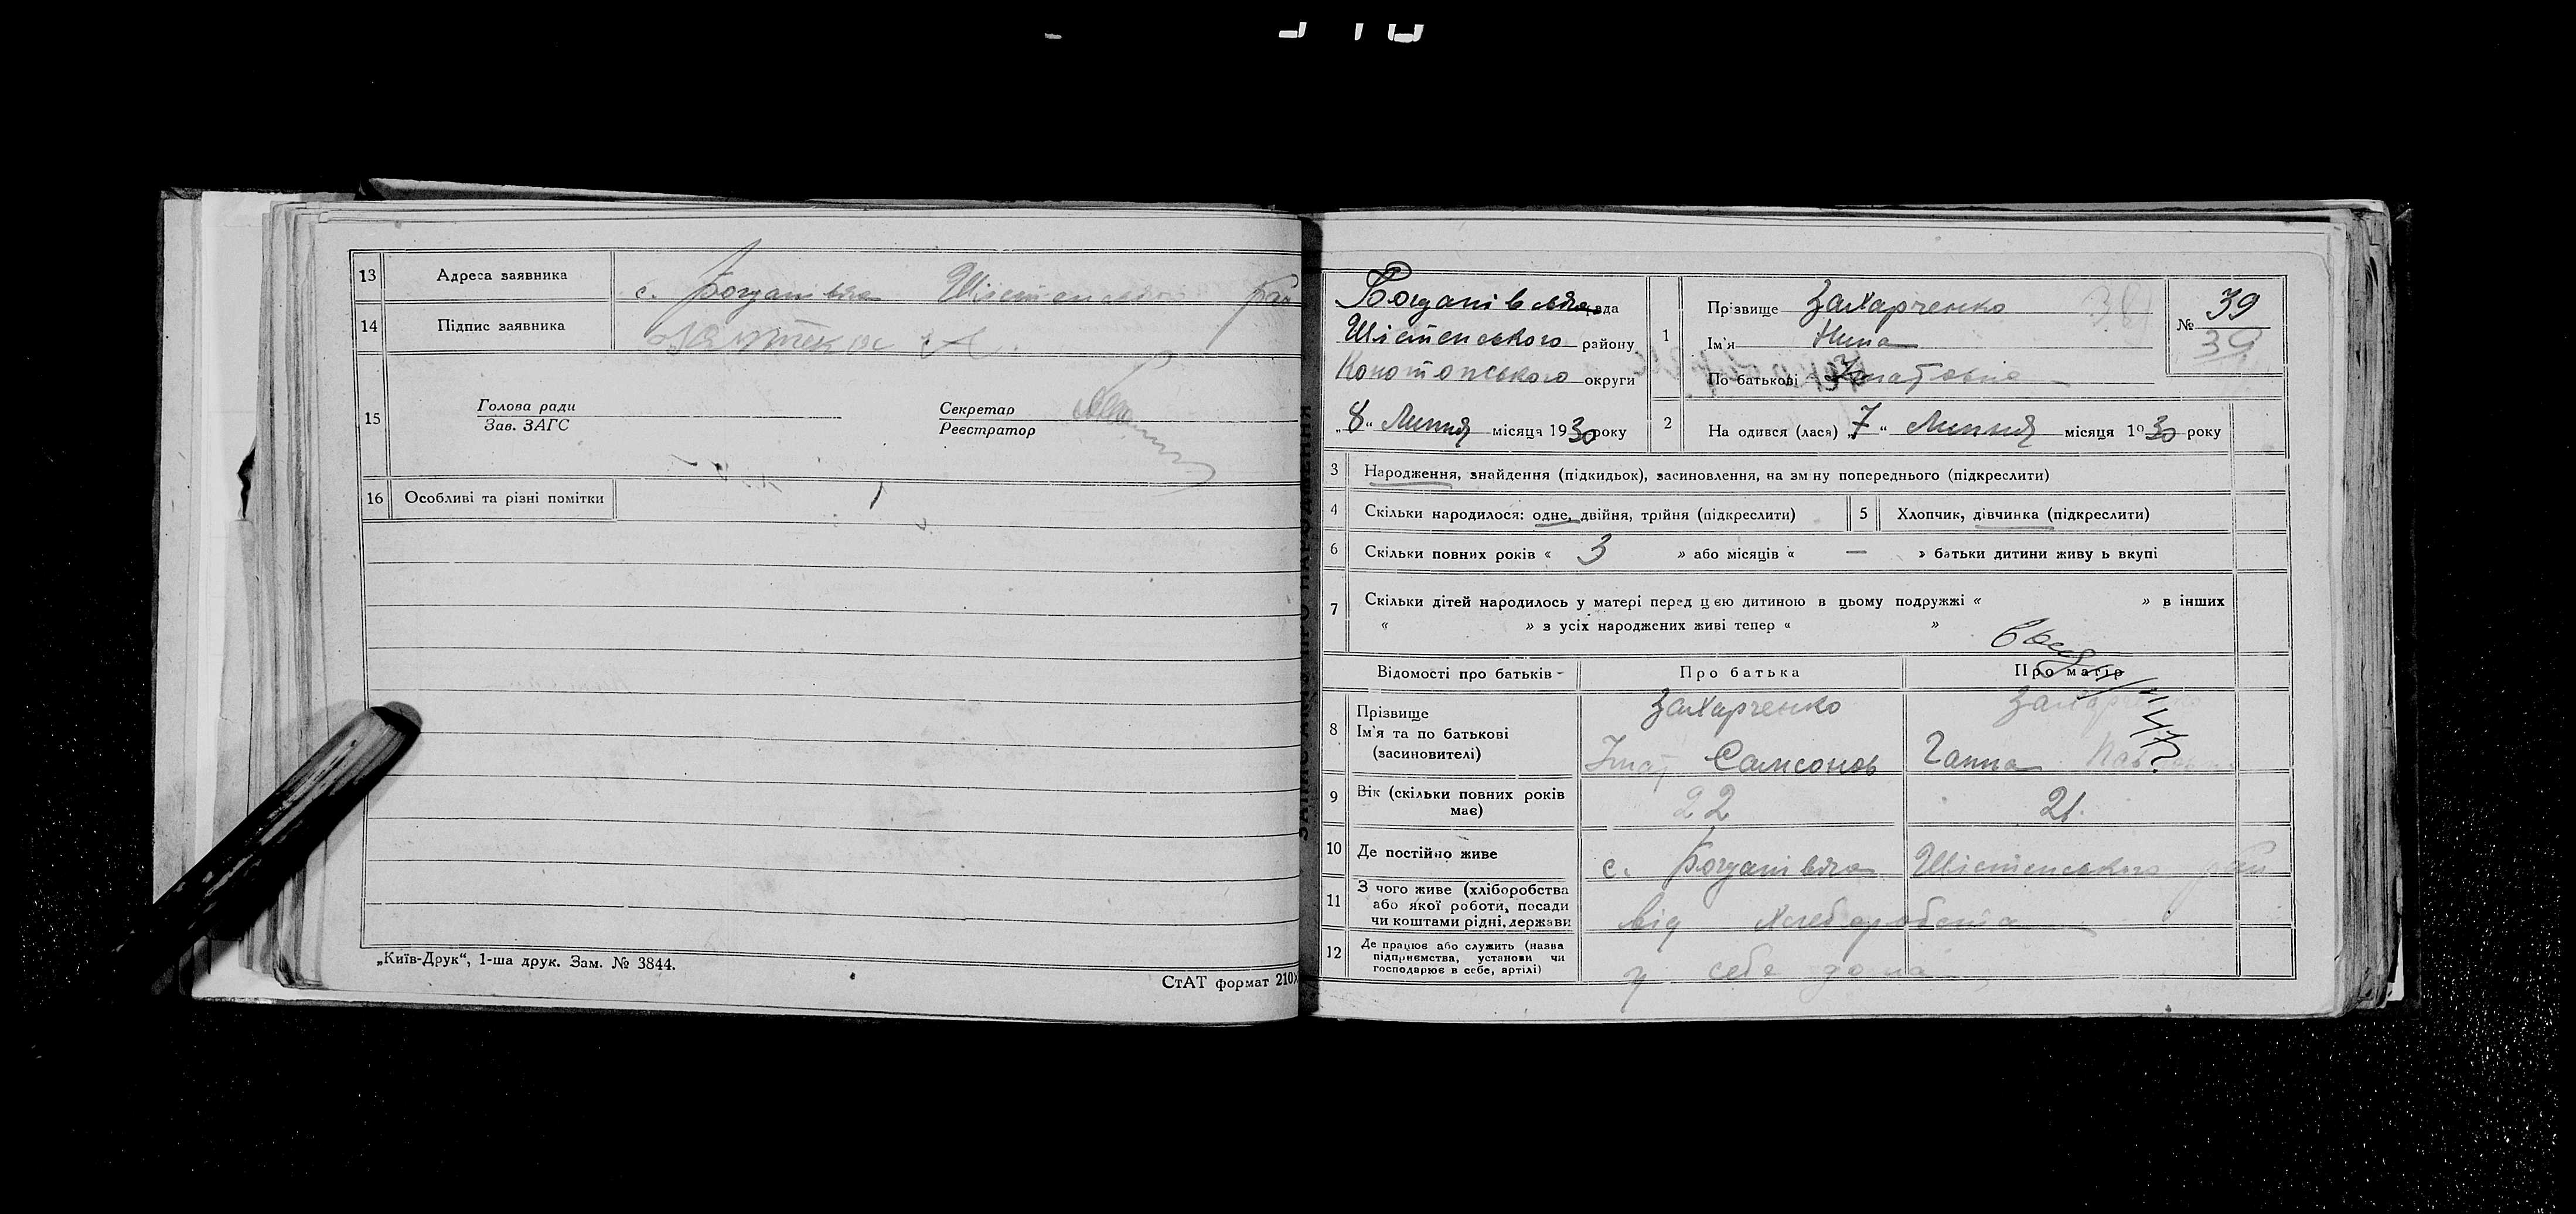 13 Адреса заявника с. Богданівка Шістенського рай
14 Підпис заявника
15 Голова ради
Зав. ЗАГС
Секретар
Реєстратор
16 Особливі та різні помітки
„Київ-Друк“, 1-ша друк. Зам. № 3844.
СтАТ формат 210×
ЗАПИС АКТА ПРО НАРОДЖЕННЯ
Богданівська рада
Шістенського району
Конотопського округи
„8“ Липня місяця 1930 року
1 Прізвище Захарченко
Ім'я Нина
По батькові Гнатовна
№ 39
39
2 Народився (лася) „7“ Липня місяця 1930 року
3 Народження, знайдення (підкидьок), засиновлення, на зміну попереднього (підкреслити)
4 Скільки народилося: одне, двійня, трійня (підкреслити)
5 Хлопчик, дівчинка (підкреслити)
6 Скільки повних років « 3 » або місяців « — » батьки дитини живуть вкупі
7 Скільки дітей народилось у матері перед цією дитиною в цьому подружжі « » в інших
« » з усіх народжених живі тепер « »
Відомості про батьків Про батька Про матір
8 Прізвище
Ім'я та по батькові
(засиновителі)
Захарченко
Гнат Самсонов
Захарченко
Ганна
9 Вік (скільки повних років має) 22 21
10 Де постійно живе с. Богданівка Шістенського рай
11 З чого живе (хліборобства
або якої роботи, посади
чи коштами рідні, держави
від хлеборобства
12 Де працює або служить (назва
підприємства, установи чи
господарює в себе, артілі)
у себе дома